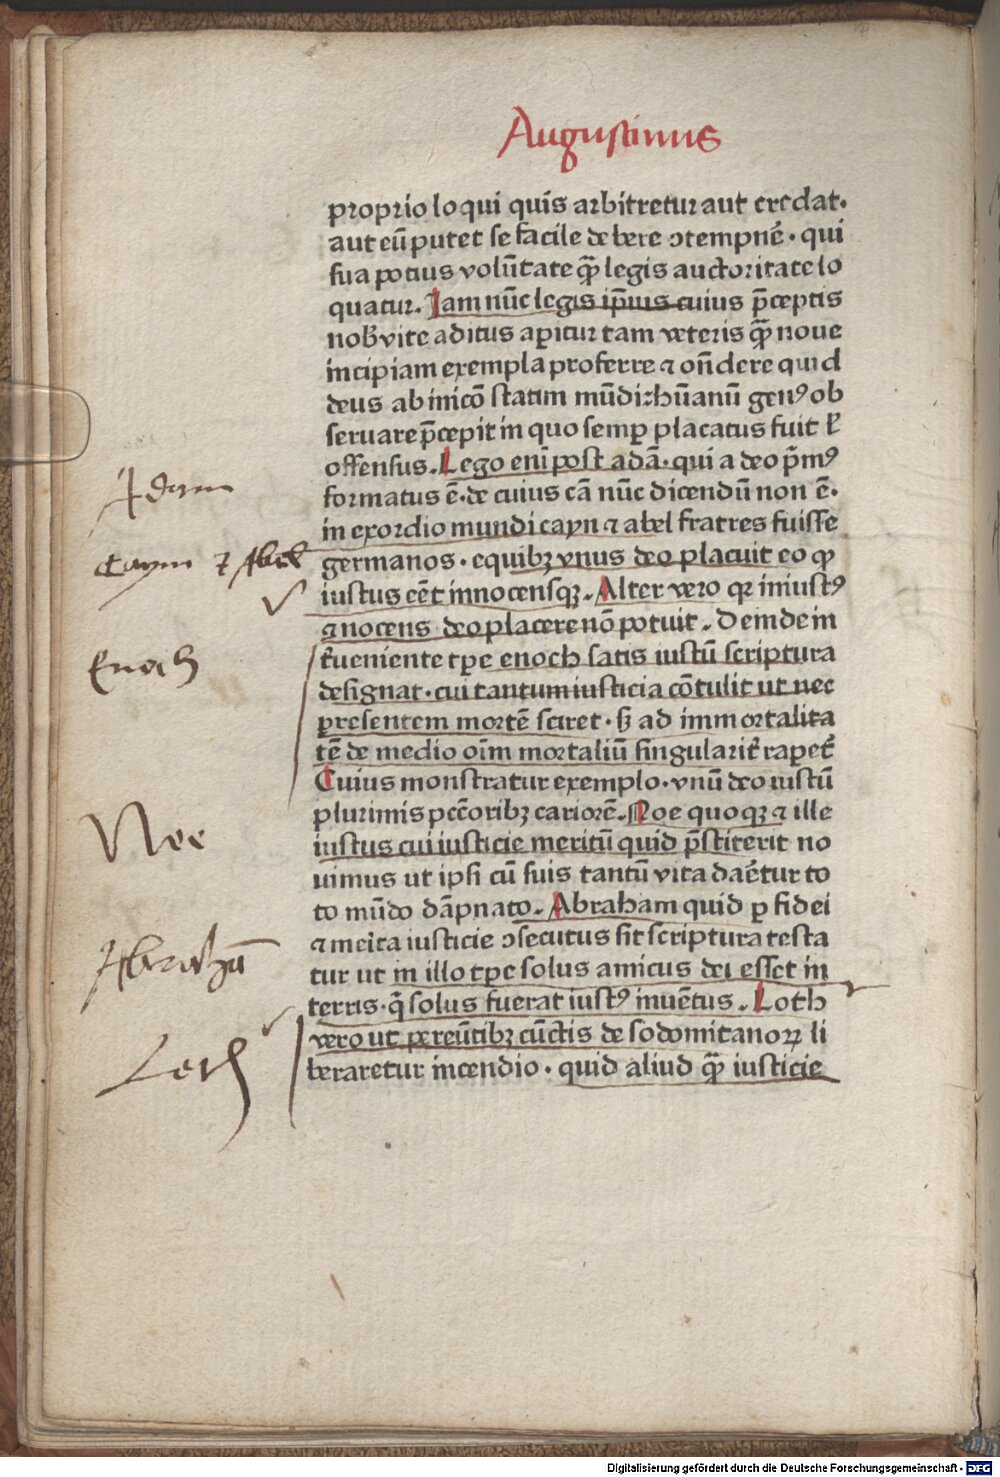 Augustinus
proprio loqui quis arbitretur aut credat.
aut eū putet se facile debere ↄtempnē. qui
sua potius volūtate q̄ legis auctoritate lo
quatur. Jam nūc legis ip̄ius cuius p̄ceptis
nob̵ vite aditus aꝑitur tam veteris q̄ noue
incipiam exempla proferre ⁊ on̄dere quid
deus ab inicō statim mūdi ⁊ hūanū genꝰ ob
seruare p̄cepit in quo semꝑ placatus fuit ł
offensus. Lego enī post adā. qui a deo p̄mꝰ
formatus ē. de cuius cā nūc dicendū non ē.
Adam
in exordio mundi cayn ⁊ abel fratres fuisse
germanos. e quibꝫ vnus deo placuit eo ꝙ
Caym ⁊ Abel
iustus eēt innocensqꝫ. Alter vero qꝛ iniustꝰ
⁊ nocens deo placere nō potuit. Deinde in
t̄ueniente tꝑe enoch satis iustū scriptura
Enoch
designat. cui tantum iusticia cōtulit ut nec
presentem mortē sciret. sꝫ ad immortalita
tē de medio oīm mortaliū singularit̄ rapet̄
Cuius monstratur exemplo. vnū deo iustū
plurimis pctōribꝫ cariorē. Noe quoqꝫ ⁊ ille
Noe
iustus cui iusticie meritū quid p̄stiterit no
uimus ut ipsi cū suis tantū vita daētur to
to mūdo dāpnato. Abraham quid ꝑ fidei
⁊ meīta iusticie ↄsecutus sit scriptura testa
Abrahā
tur ut in illo tꝑe solus amicus dei esset in
terris. q̄ solus fuerat iustꝰ inuētus. Loth
vero ut ꝑeūtibꝫ cūctis de sodomitanoꝝ li
Loth
beraretur incendio. quid aliud q̄ iusticie
Digitalisierung gefördert durch die Deutsche Forschungsgemeinschaft - DFG